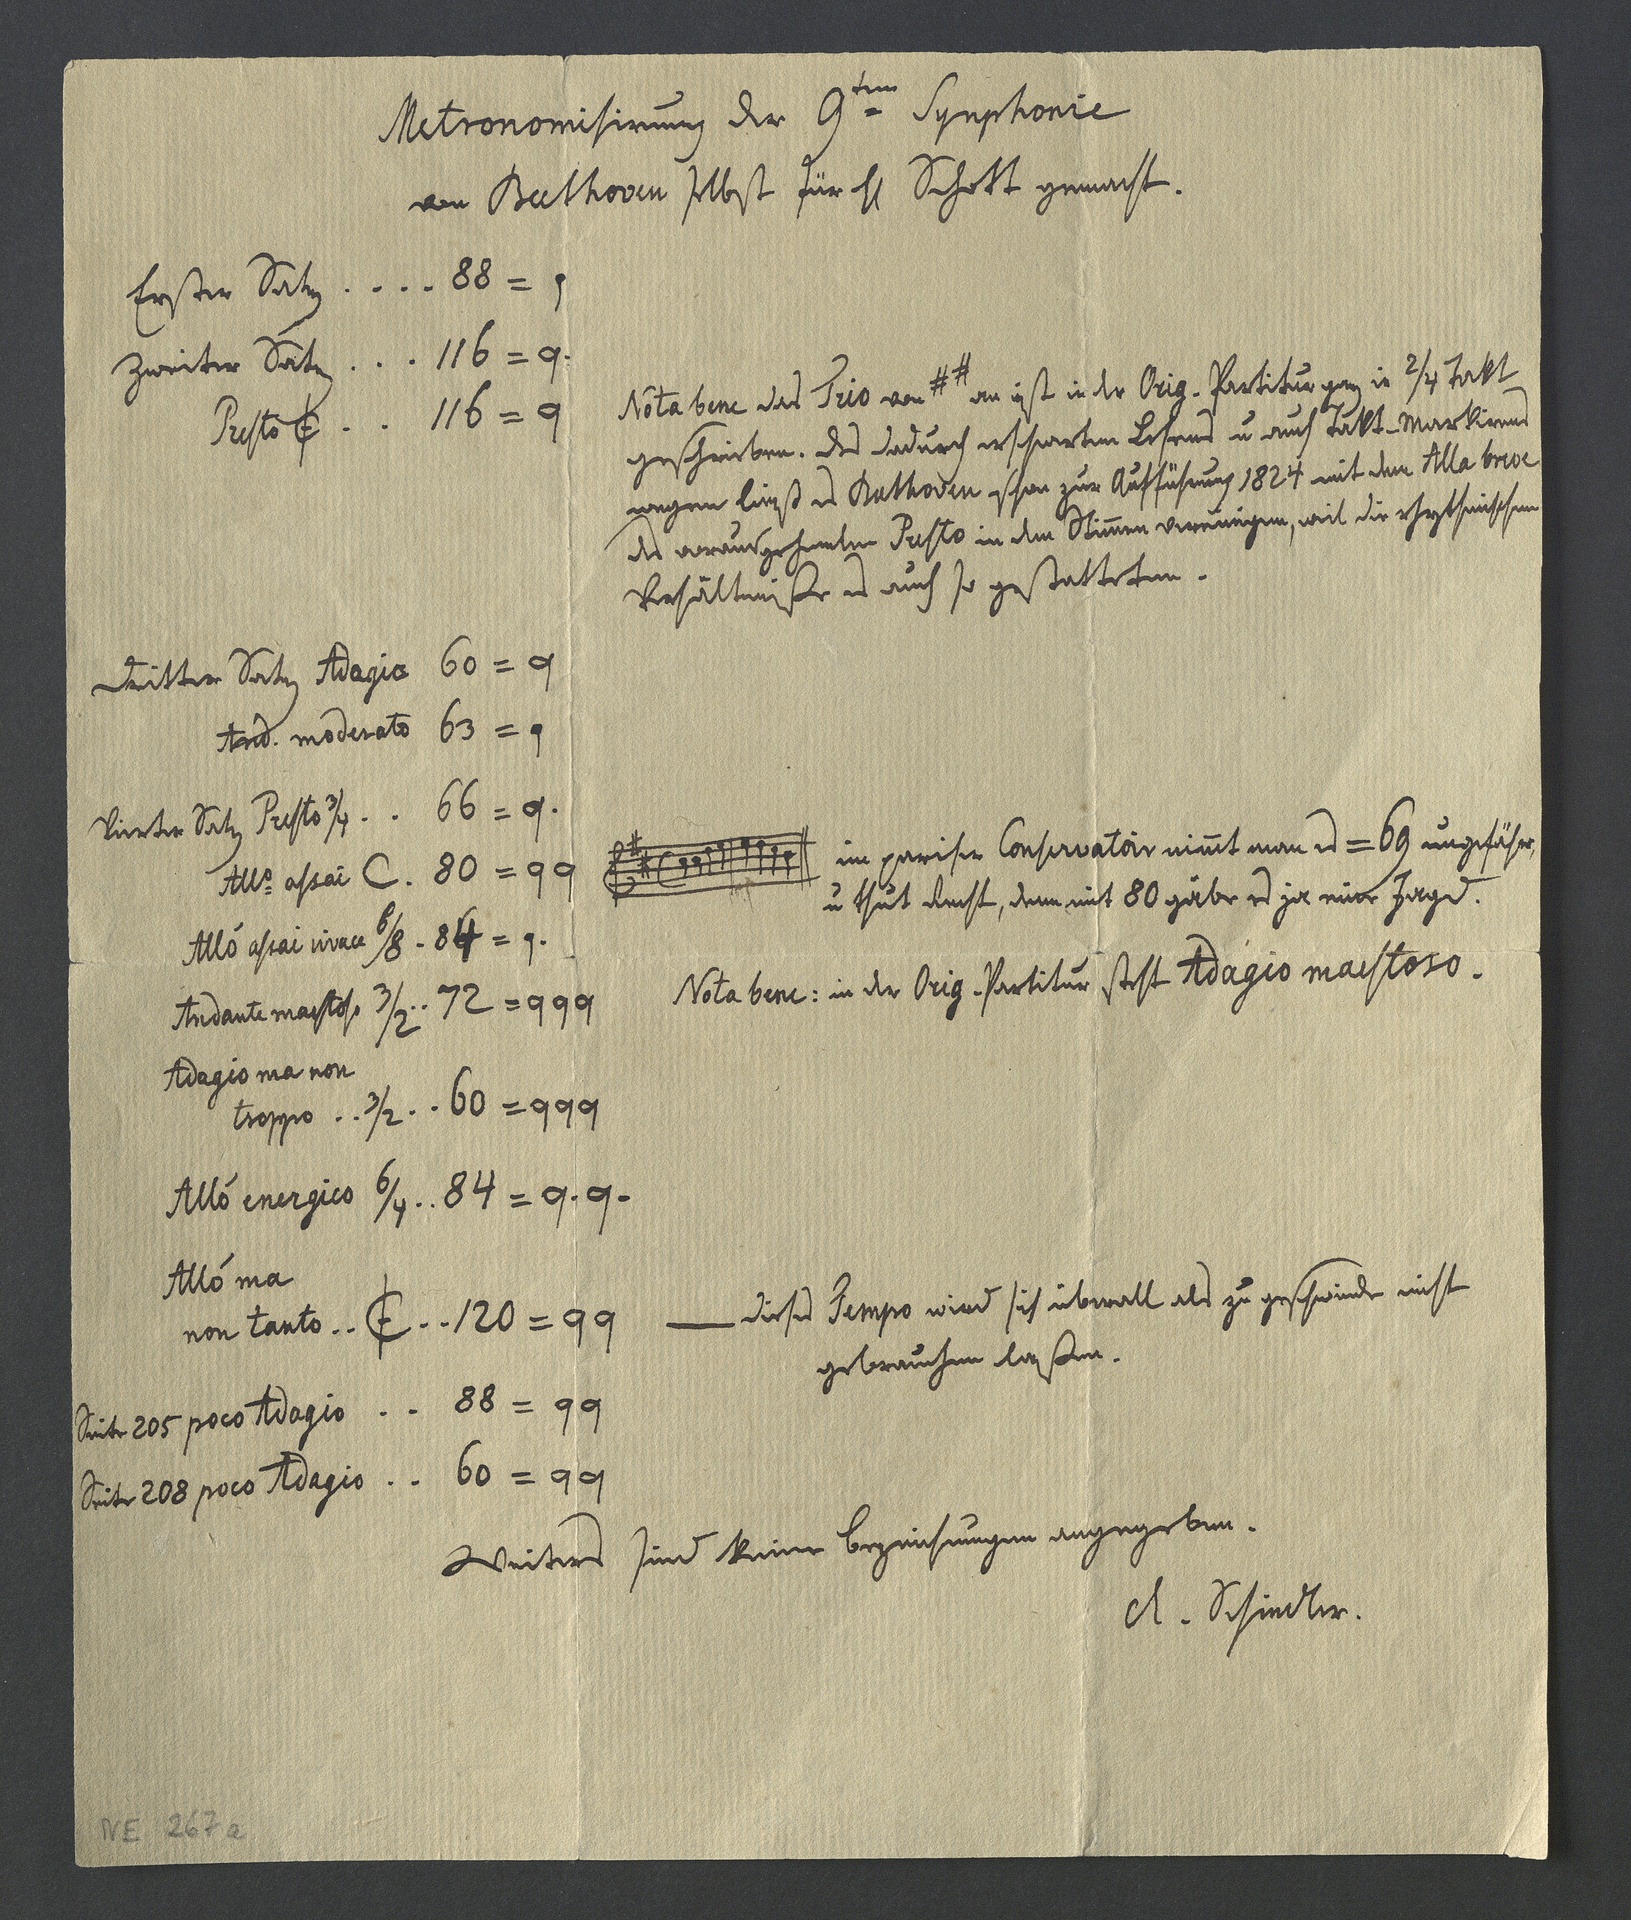 Metronomisirung der 9ten Symphonie
von Beethoven selbst für H Schott gemacht.
Erster Satz . . . . 88 = ♩
Zweiter Satz . . . 116 = 𝅗𝅥.
Presto ¢ . . 116 = 𝅗𝅥
Nota bene das Trio von ## an ist in der Orig. Partitur ganz in 2/4 Takt
geschrieben. Des dadurch erschwerten Lesens u auch Takt-Markirens
wegen ließ es Beethoven schon zur Aufführung 1824 mit dem Alla breve
des vorausgehenden Presto in den Stimmen vereinigen, weil die rhythmischen
Verhältniße es auch so gestatteten.
Dritter Satz Adagio 60 = 𝅗𝅥
And. moderato 63 = ♩
Vierter Satz Presto 3/4 . . 66 = 𝅗𝅥.
Allo assai C . 80 = 𝅗𝅥 𝅗𝅥
im pariser Conservatoir nim̅t man es = 69 ungefäher,
u thut recht, denn mit 80 gäbe es ja eine Jagd.
Alló assai vivace 6/8 . 84 = ♩.
Andante maestoso 3/2 . . 72 = 𝅗𝅥 𝅗𝅥 𝅗𝅥
Nota bene: in der Orig. Partitur steht Adagio maestoso.
Adagio ma non
troppo . . 3/2 . . 60 = 𝅗𝅥 𝅗𝅥 𝅗𝅥
Alló energico 6/4 . . 84 = 𝅗𝅥. 𝅗𝅥.
Alló ma
non tanto . . ¢ . . 120 = 𝅗𝅥 𝅗𝅥
— dieses Tempo wird sich überall als zu geschwinde nicht
gebrauchen laßen.
Seite 205 poco Adagio . . 88 = 𝅗𝅥 𝅗𝅥
Seite 208 poco Adagio . . 60 = 𝅗𝅥 𝅗𝅥
Weiters sind keine Bezeichnungen angegeben.
A. Schindler.
NE 267a